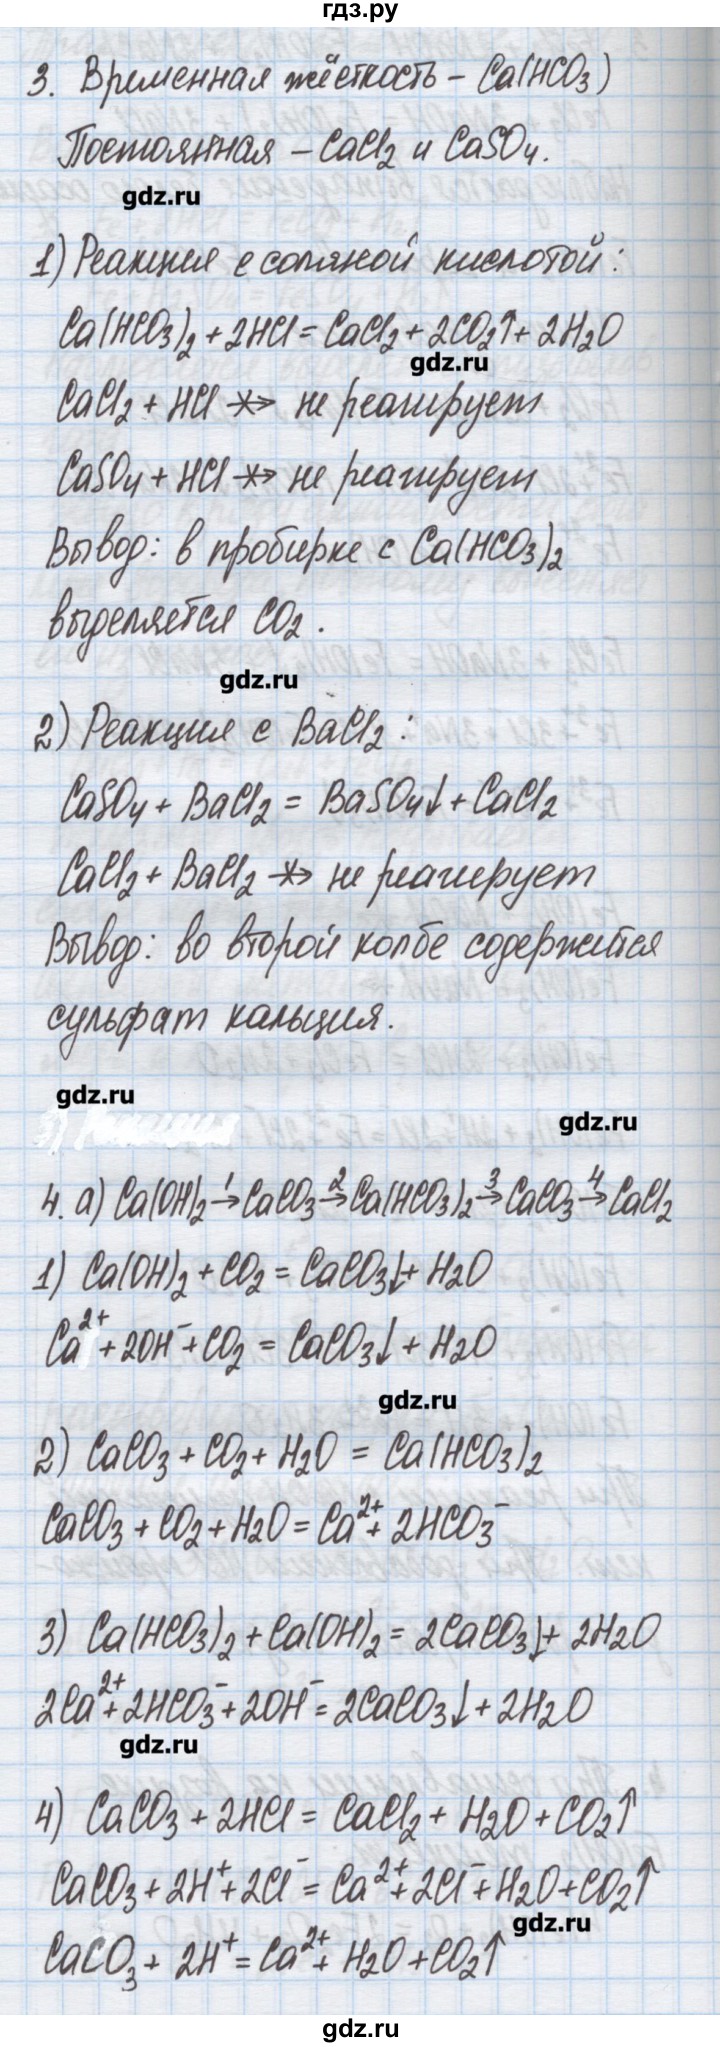 гдз.ру
3. Временная жёсткость – Ca(HCO3)
Постоянная – CaCl2 и CaSO4.
gdz.ru
1) Реакция с соляной кислотой:
Ca(HCO3)2 + 2HCl = CaCl2 + 2CO2↑ + 2H2O
gdz.ru
CaCl2 + HCl ↛ не реагирует
CaSO4 + HCl ↛ не реагирует
Вывод: в пробирке с Ca(HCO3)2
выделяется CO2.
gdz.ru
2) Реакция с BaCl2:
CaSO4 + BaCl2 = BaSO4↓ + CaCl2
CaCl2 + BaCl2 ↛ не реагирует
Вывод: во второй колбе содержится
сульфат кальция.
gdz.ru
gdz.ru
4. а) Ca(OH)2 →1 CaCO3 →2 Ca(HCO3)2 →3 CaCO3 →4 CaCl2
1) Ca(OH)2 + CO2 = CaCO3↓ + H2O
Ca2+ + 2OH- + CO2 = CaCO3↓ + H2O
gdz.ru
2) CaCO3 + CO2 + H2O = Ca(HCO3)2
CaCO3 + CO2 + H2O = Ca2+ + 2HCO3-
3) Ca(HCO3)2 + Ca(OH)2 = 2CaCO3↓ + 2H2O
2Ca2+ + 2HCO3- + 2OH- = 2CaCO3↓ + 2H2O
gdz.ru
4) CaCO3 + 2HCl = CaCl2 + H2O + CO2↑
CaCO3 + 2H+ + 2Cl- = Ca2+ + 2Cl- + H2O + CO2↑
gdz.ru
CaCO3 + 2H+ = Ca2+ + H2O + CO2↑
gdz.ru